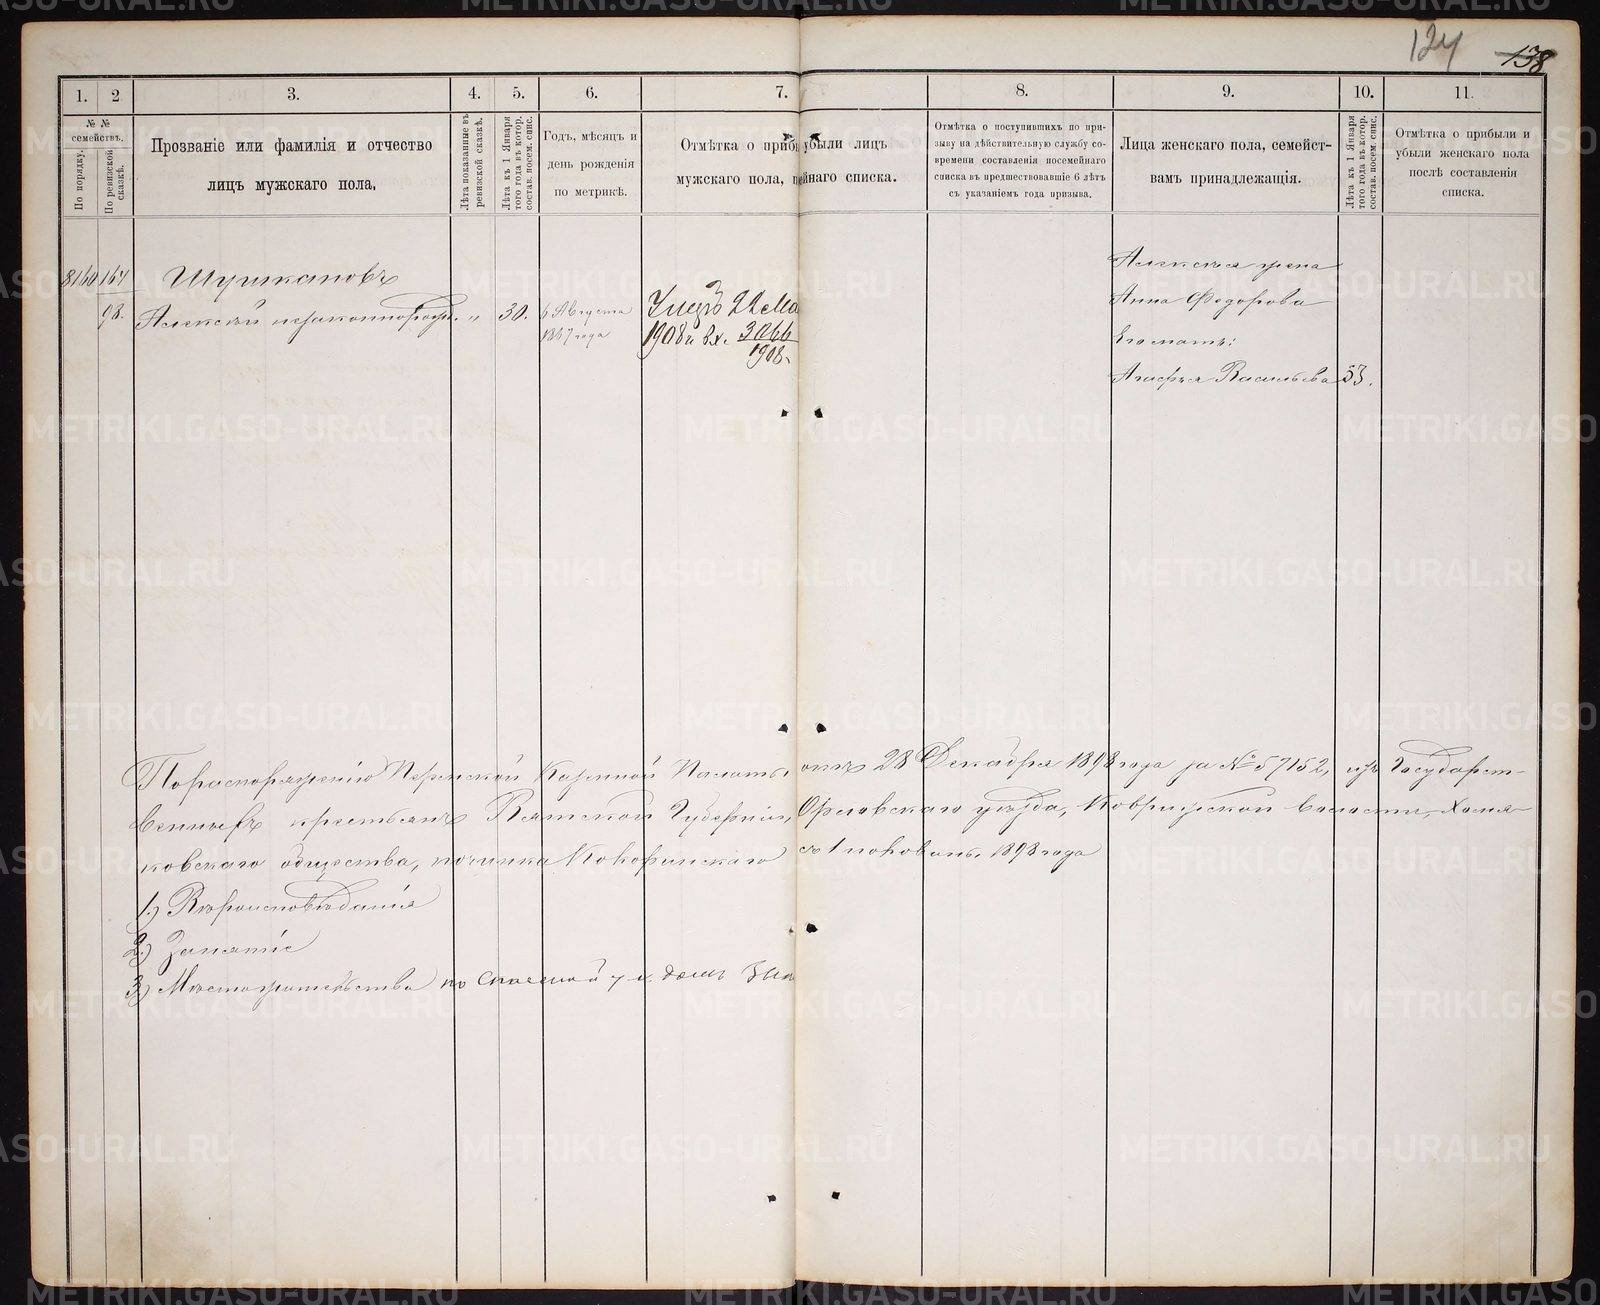 124
138
1. 2 3. 4. 5. 6. 7. 8. 9. 10. 11.
№ №
семействъ.
По порядку.
По ревизской
сказкѣ.
Прозваніе или фамилія и отчество
лицъ мужскаго пола.
Лѣта показанные въ
ревизской сказкѣ.
Лѣта къ 1 Января
того года въ котор.
состав. посем. спис.
Годъ, мѣсяцъ и
день рожденія
по метрикѣ.
Отмѣтка о прибыли лицъ
мужскаго пола, 
ейнаго списка.
Отмѣтка о поступившихъ по при-
зыву на дѣйствительную службу со-
времени составленія посемейнаго
списка въ предшествовавшіе 6 лѣтъ
съ указаніемъ года призыва.
Лица женскаго пола, семейст-
вамъ принадлежащія.
Лѣта къ 1 Января
того года въ котор.
состав. посем. спис.
Отмѣтка о прибыли и
убыли женскаго пола
послѣ составленія
списка.
8160 164
98.
Шушкановъ
Алексѣй незаконнорожд. „ 30.
6 Августа
1867 года
Умеръ 22 Ма
1908 г. вх. 3066
1908.
Алексѣя жена
Анна Федорова
Его мать:
Агафья Васильева 53.
По распоряженію Пермской Казенной Палаты отъ 28 Декабря 1898 года за № 57152, изъ Государст-
венныхъ крестьянъ Вятской Губерніи, Орловскаго уѣзда, Ковризской волости,
ковскаго общества, починка Кокоринскаго съ 1 половины 1898 года
1.) Вѣроисповѣданія
2.) Занятіе
3.) Мѣстожительства по д. домъ
METRIKI.GASO-URAL.RU